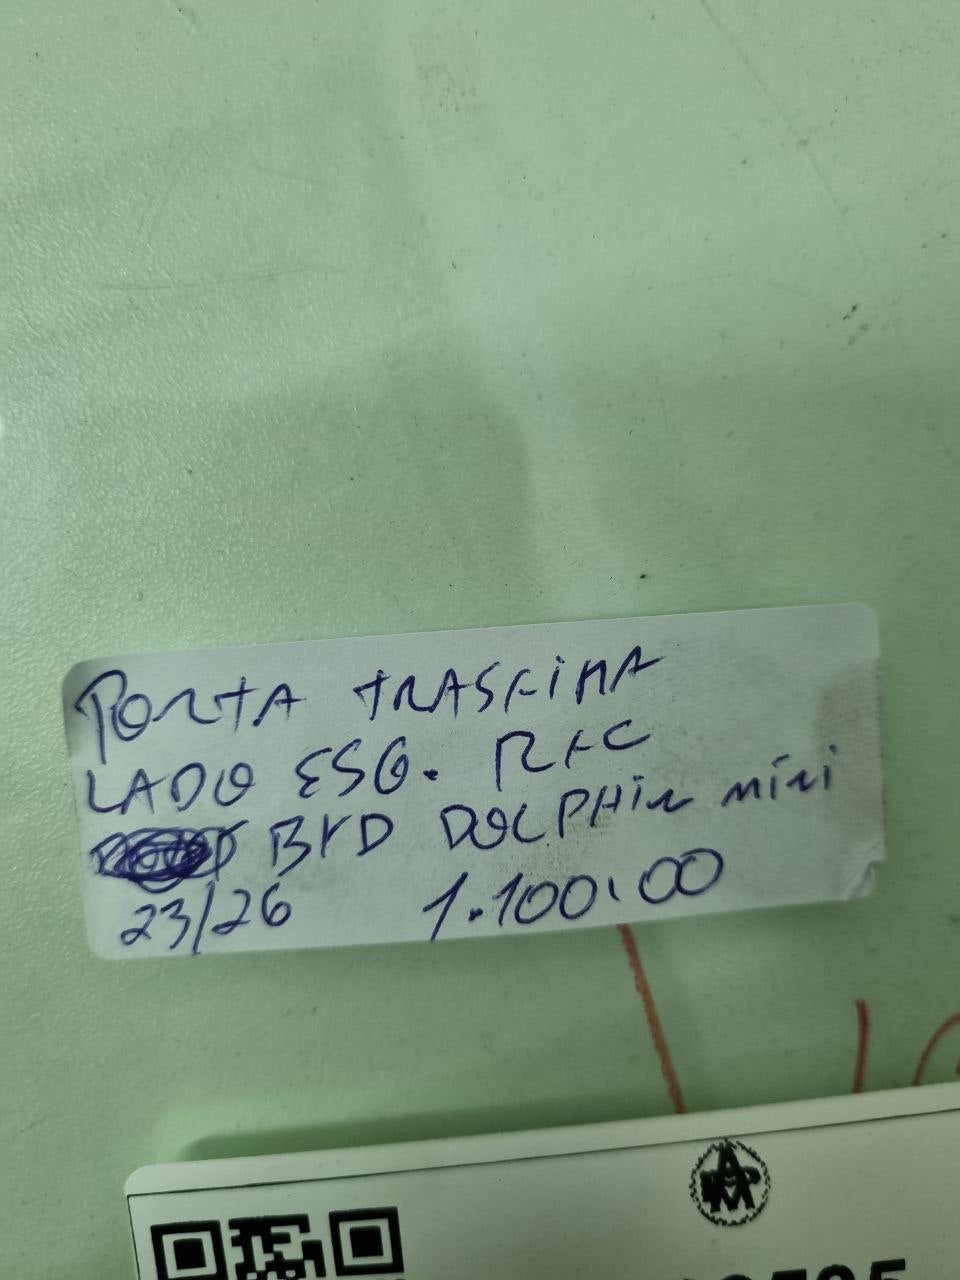 PORTA TRASEIRA
LADO ESQ. REC
BYD DOLPHIN mini
23/26 1.100,00